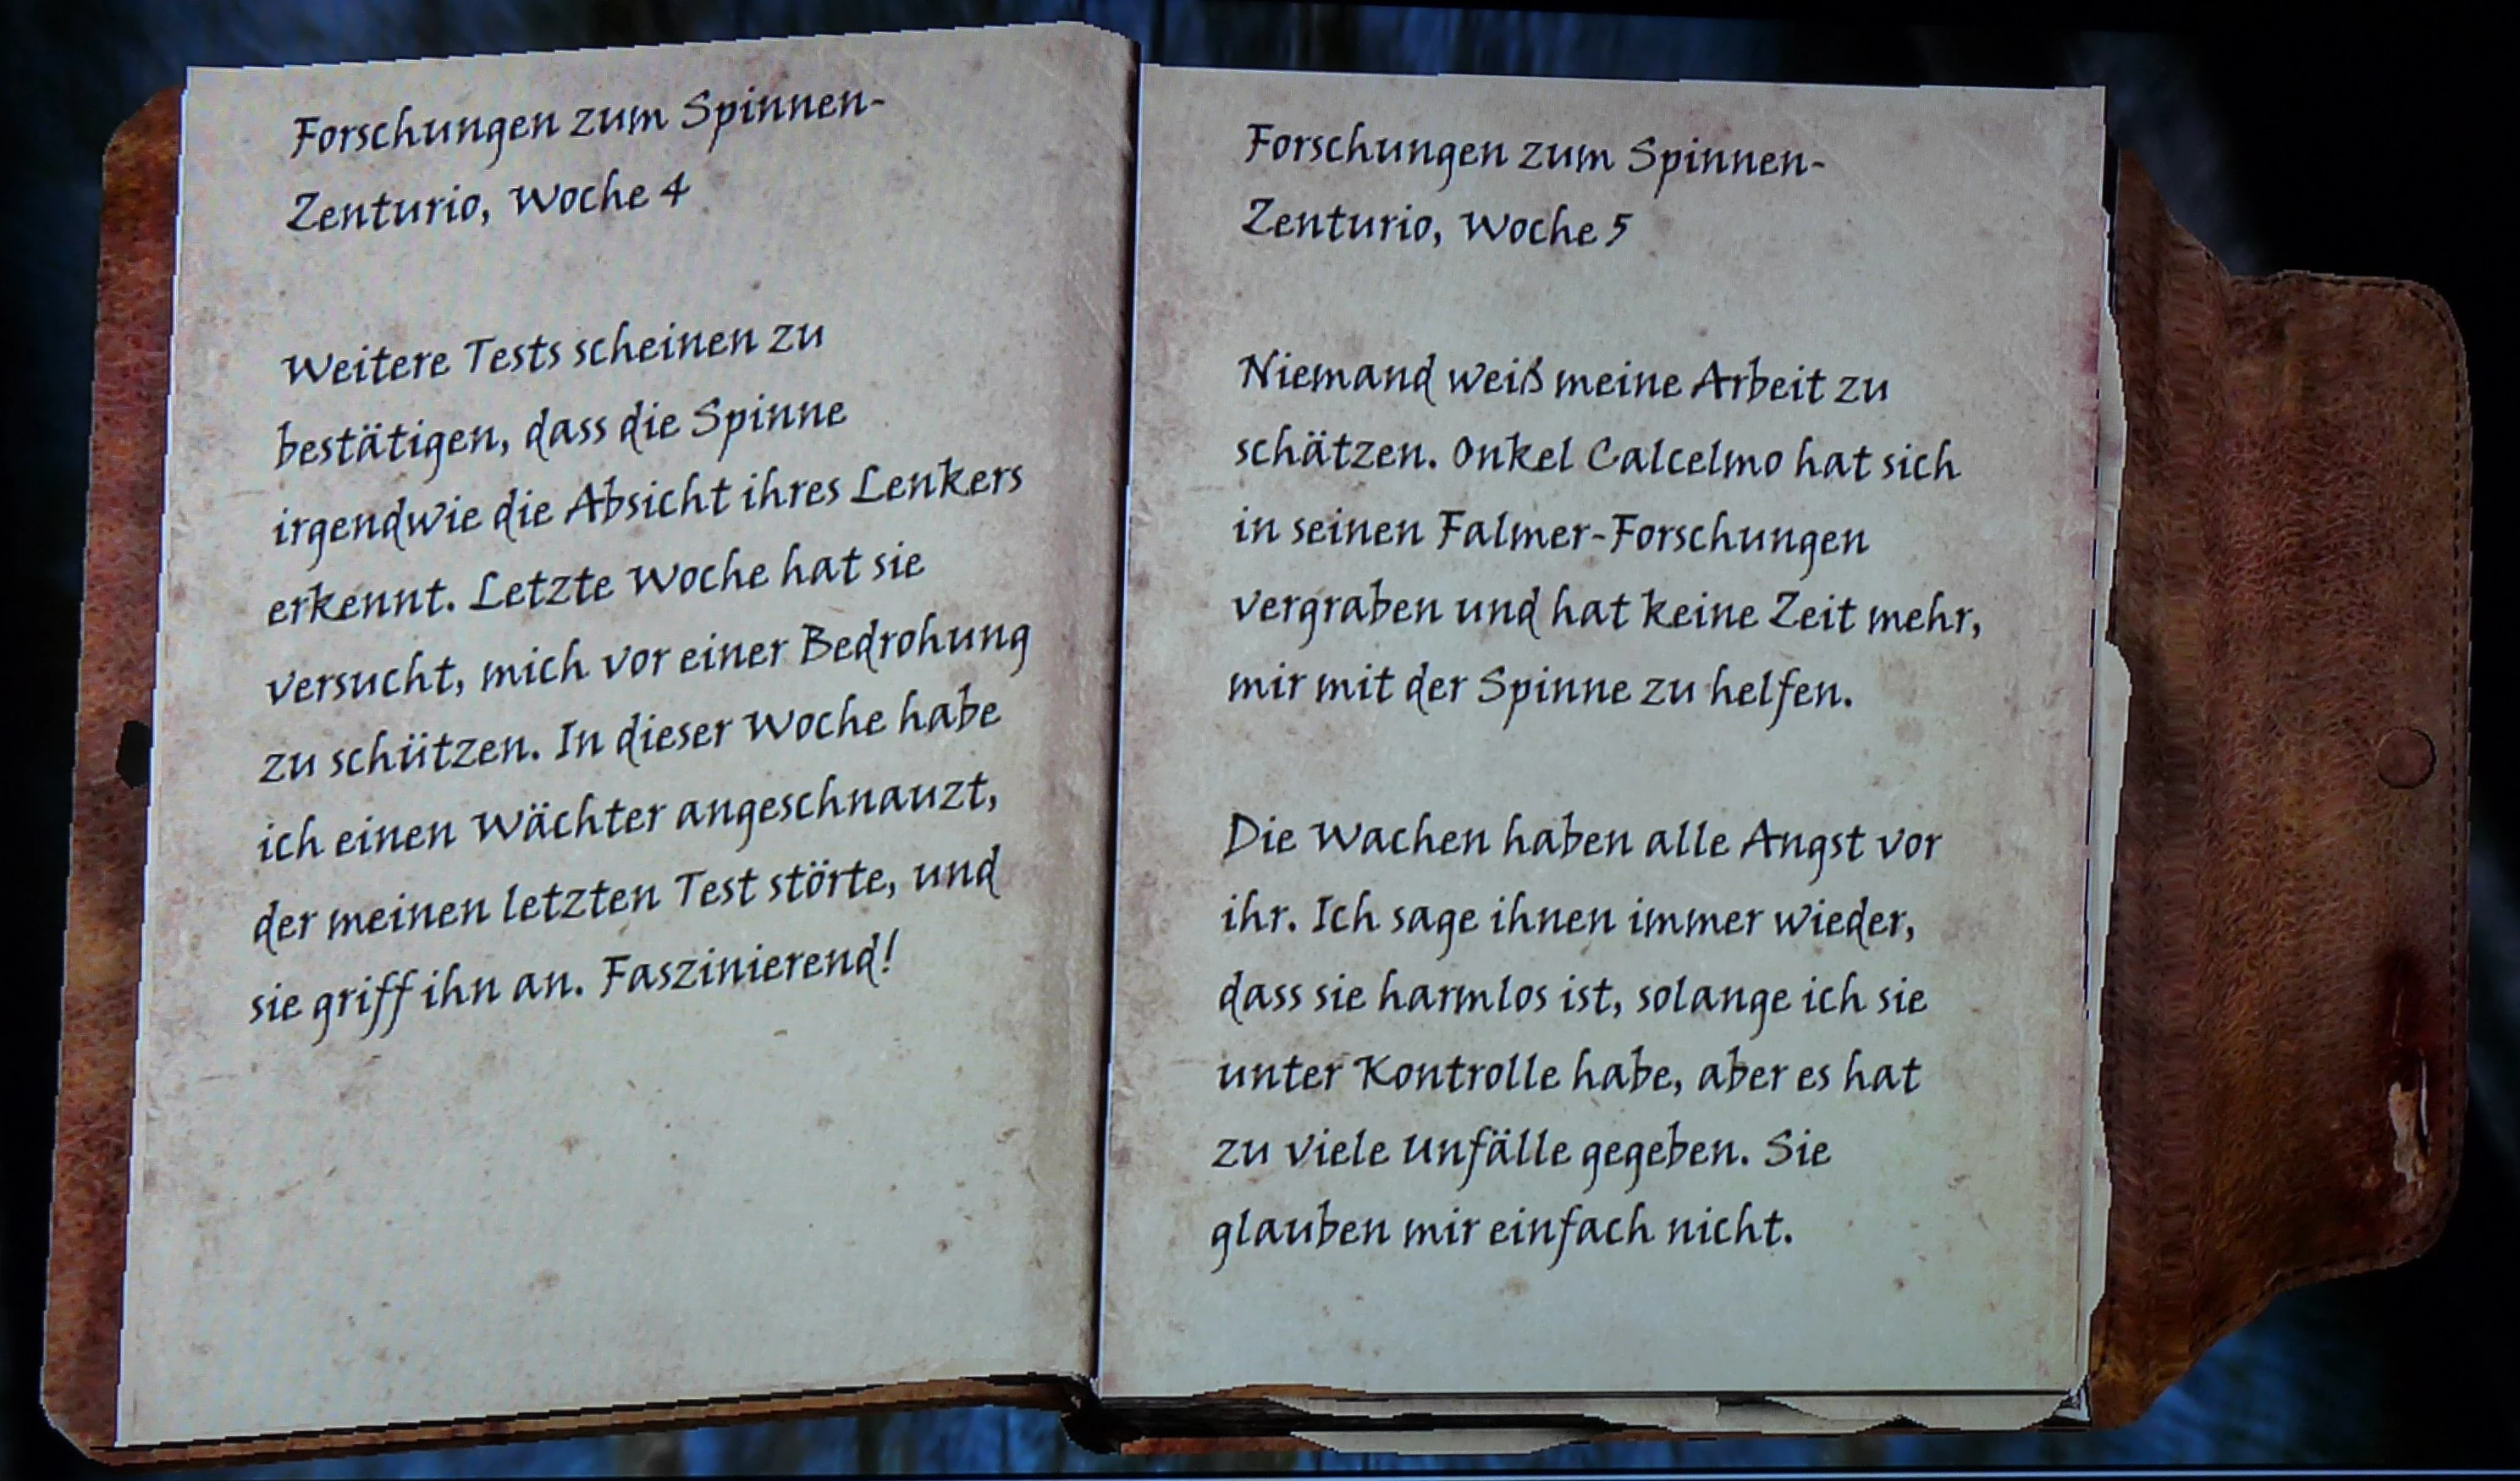 Forschungen zum Spinnen-
Zenturio, Woche 4
Weitere Tests scheinen zu
bestätigen, dass die Spinne
irgendwie die Absicht ihres Lenkers
erkennt. Letzte Woche hat sie
versucht, mich vor einer Bedrohung
zu schützen. In dieser Woche habe
ich einen Wächter angeschnauzt,
der meinen letzten Test störte, und
sie griff ihn an. Faszinierend!
Forschungen zum Spinnen-
Zenturio, Woche 5
Niemand weiß meine Arbeit zu
schätzen. Onkel Calcelmo hat sich
in seinen Falmer-Forschungen
vergraben und hat keine Zeit mehr,
mir mit der Spinne zu helfen.
Die Wachen haben alle Angst vor
ihr. Ich sage ihnen immer wieder,
dass sie harmlos ist, solange ich sie
unter Kontrolle habe, aber es hat
zu viele Unfälle gegeben. Sie
glauben mir einfach nicht.